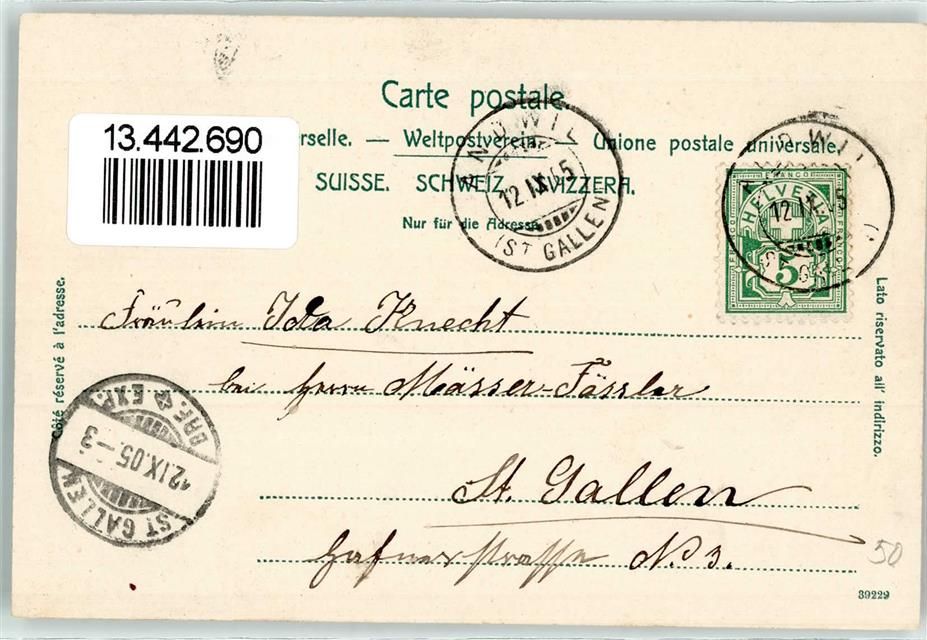 Carte postale.
13.442.690
rselle. — Weltpostverein — Unione postale universale.
SUISSE. SCHWEIZ. SVIZZERA.
Nur für die Adresse.
ANDWIL
12.IX.05
(ST GALLEN)
ANDWIL
12.IX.05
FRANCO
HELVETIA
5
Côté réservé à l'adresse.
Lato riservato all' indirizzo.
Fräulein Ida Knecht
bei Herrn Mässer-Fässler
St. Gallen
Hafnerstrasse N. 3.
BRF EXP.
12.IX.05.–3
ST GALLEN
50
39229